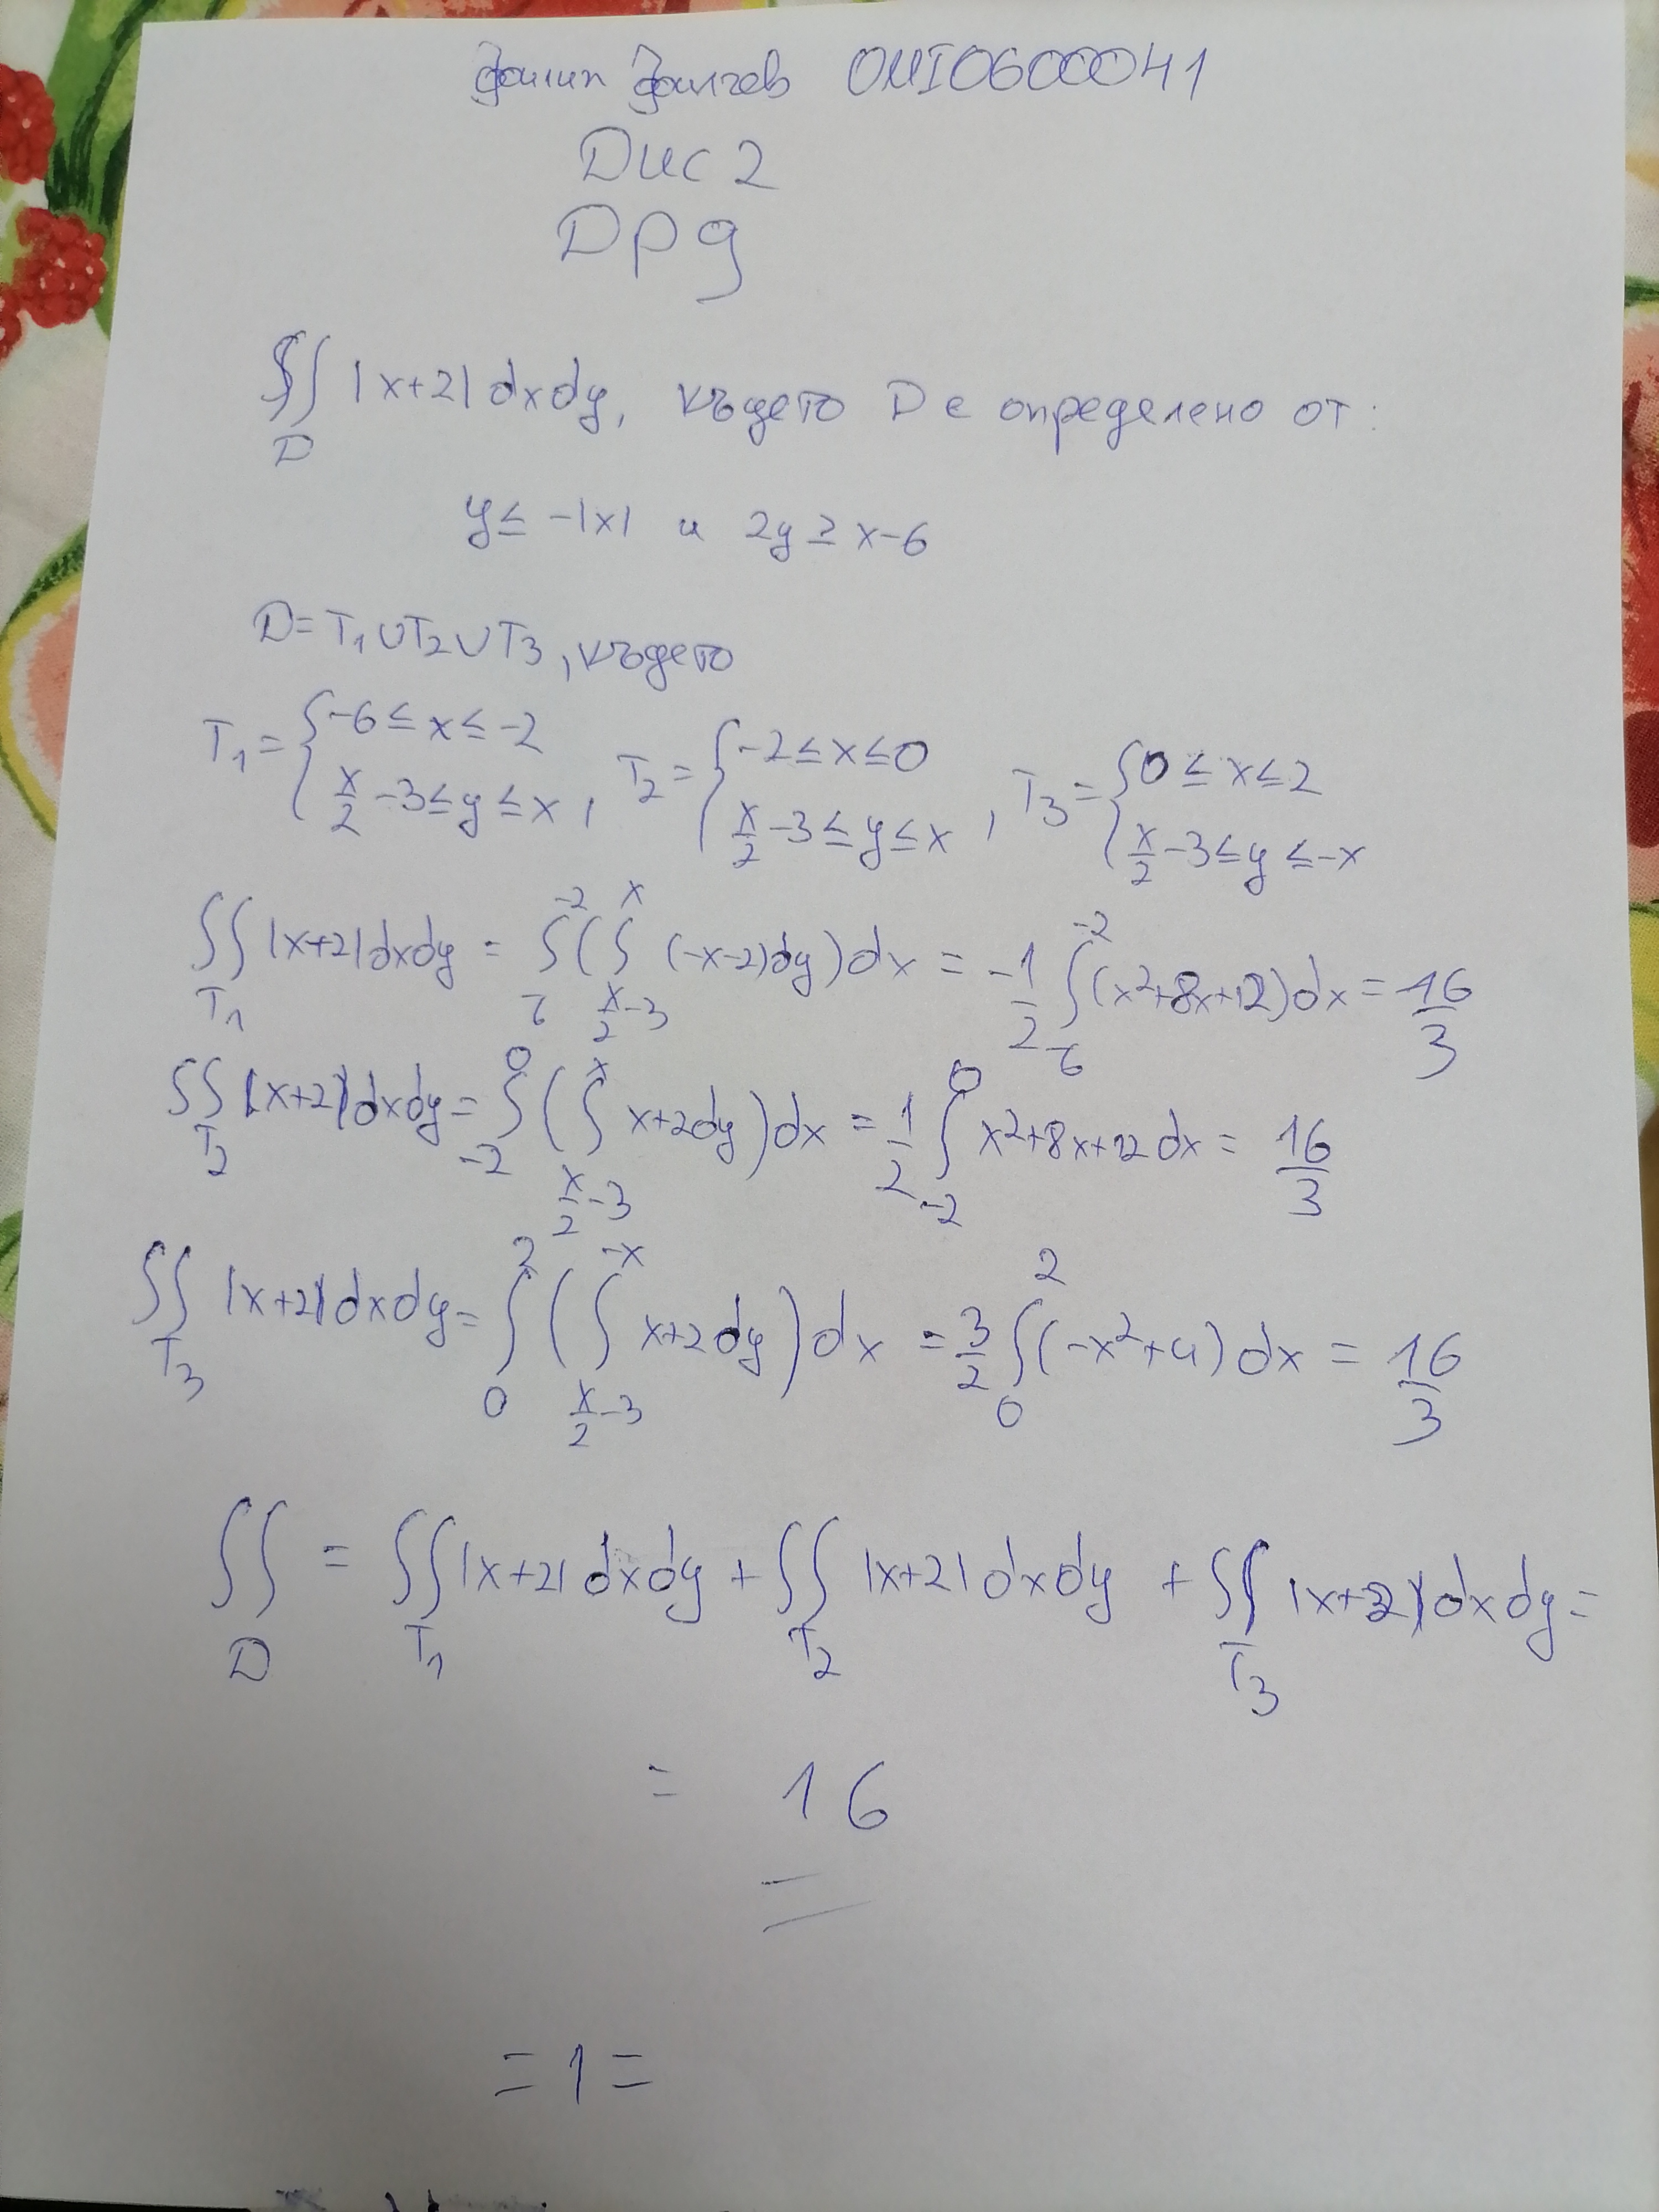 Фолин Фолчев 0MI0600041
Дис 2
Dрg
∬_D |x+2| dxdy, където D е определено от:
y ≤ -|x| и 2y ≥ x-6
D = T₁∪T₂∪T₃, където
T₁ = { -6 ≤ x ≤ -2 ; x/2 - 3 ≤ y ≤ x , T₂ = { -2 ≤ x ≤ 0 ; x/2 - 3 ≤ y ≤ x , T₃ = { 0 ≤ x ≤ 2 ; x/2 - 3 ≤ y ≤ -x
∬_T₁ |x+2| dxdy = ∫_{-6}^{-2} ( ∫_{x/2-3}^{x} (-x-2)dy ) dx = -1/2 ∫_{-6}^{-2} (x²+8x+12) dx = 16/3
∬_T₂ |x+2| dxdy = ∫_{-2}^{0} ( ∫_{x/2-3}^{x} x+2dy ) dx = 1/2 ∫_{-2}^{0} x²+8x+12 dx = 16/3
∬_T₃ |x+2| dxdy = ∫_{0}^{2} ( ∫_{x/2-3}^{-x} x+2dy ) dx = 3/2 ∫_{0}^{2} (-x²+4) dx = 16/3
∬_D = ∬_T₁ |x+2| dxdy + ∬_T₂ |x+2| dxdy + ∬_T₃ |x+2| dxdy =
= 16
=1=